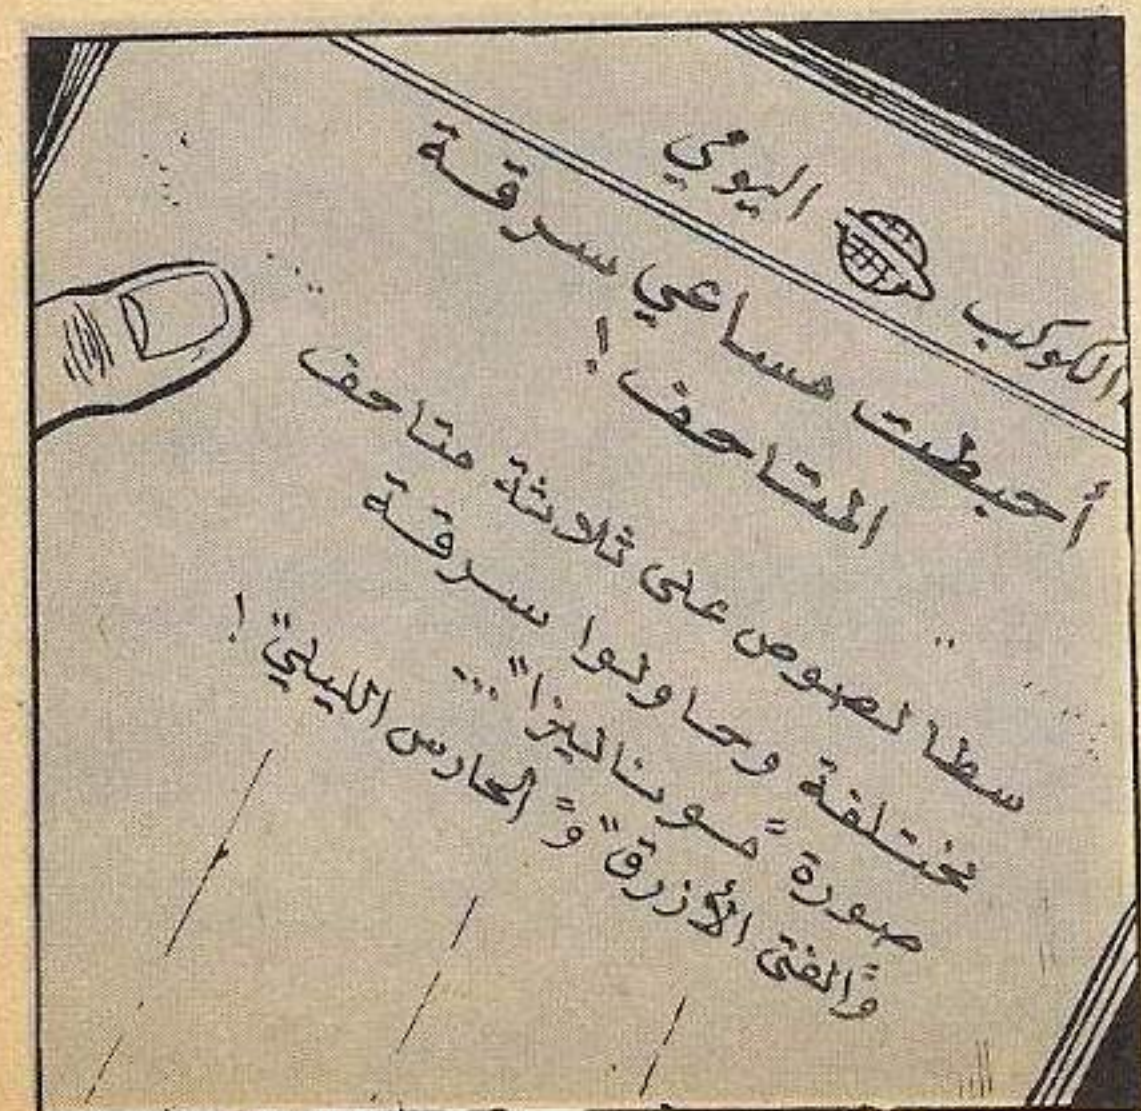 الكوكب اليومي
أحبطت مساعي سرقة
المتاحف !
سطا لصوص على ثلاثة متاحف
مختلفة وحاولوا سرقة
صورة "موناليزا" ...
و"الفتى الأزرق" و"الحارس الليلي" !